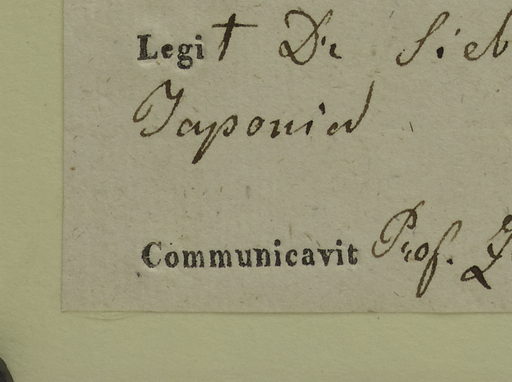 Legit Dr Sieb
Japonia
Communicavit Prof. Z